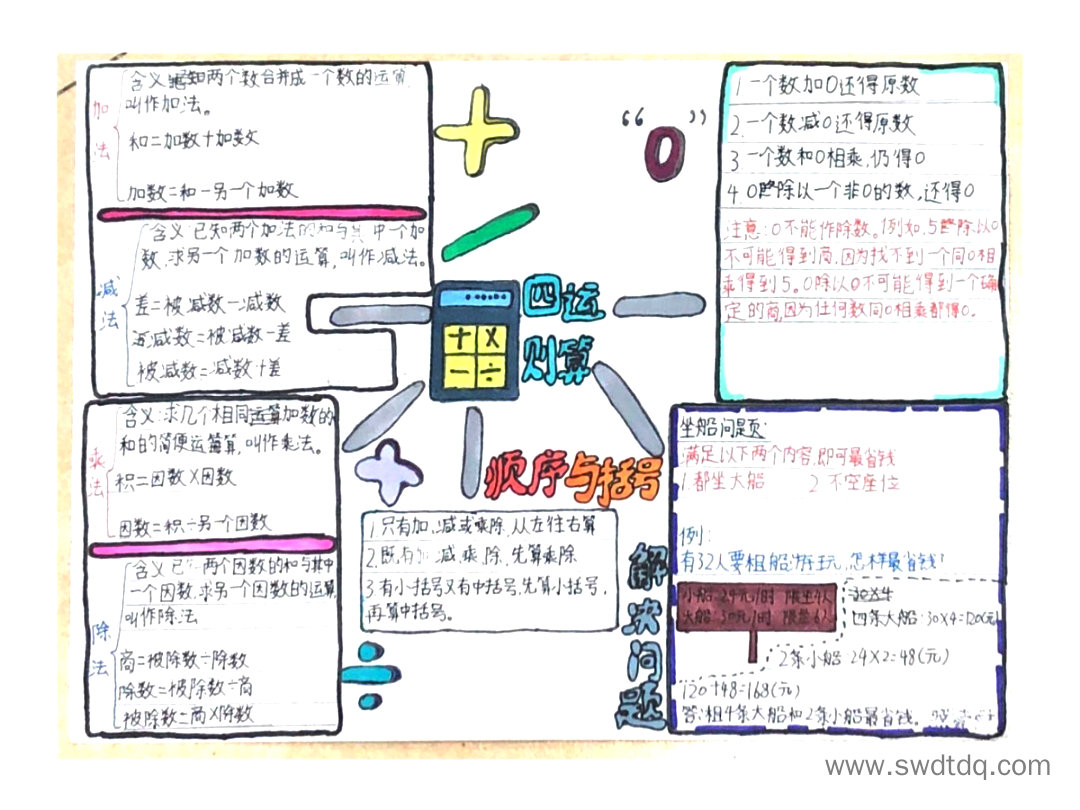 加法
含义:已知两个数合并成一个数的运算,
叫作加法。
和=加数+加数
加数=和-另一个加数
减法
含义:已知两个加法的和与其中一个加
数,求另一个加数的运算,叫作减法。
差=被减数-减数
减数=被减数-差
被减数=减数+差
乘法
含义:求几个相同运算加数的
和的简便运算,叫作乘法。
积=因数×因数
因数=积÷另一个因数
除法
含义已 两个因数的和与其中
一个因数,求另一个因数的运算
叫作除法
商=被除数÷除数
除数=被除数÷商
被除数=商×除数
+
-
+ ×
- ÷
四运
则算
×
÷
顺序与括号
1.只有加.减或乘除,从左往右算
2.既有加.减,乘.除,先算乘除
3.有小括号又有中括号,先算小括号,
再算中括号。
“0”
1.一个数加0还得原数
2.一个数减0还得原数
3.一个数和0相乘,仍得0
4.0除以一个非0的数,还得0
注意:0不能作除数。例如,5除以0
不可能得到商,因为找不到一个同0相
乘得到5。0除以0不可能得到一个确
定的商,因为任何数同0相乘都得0。
解决问题
坐船问题:
满足以下两个内容,即可最省钱
1.都坐大船 2.不空座位
例:
有32人要租船游玩,怎样最省钱!
小船:24元/时 限坐4人
大船:30元/时 限坐6人
30×4
四条大船:30×4=120(元)
2条小船:24×2=48(元)
120+48=168(元)
答:租4条大船和2条小船最省钱。
www.swdtdq.com